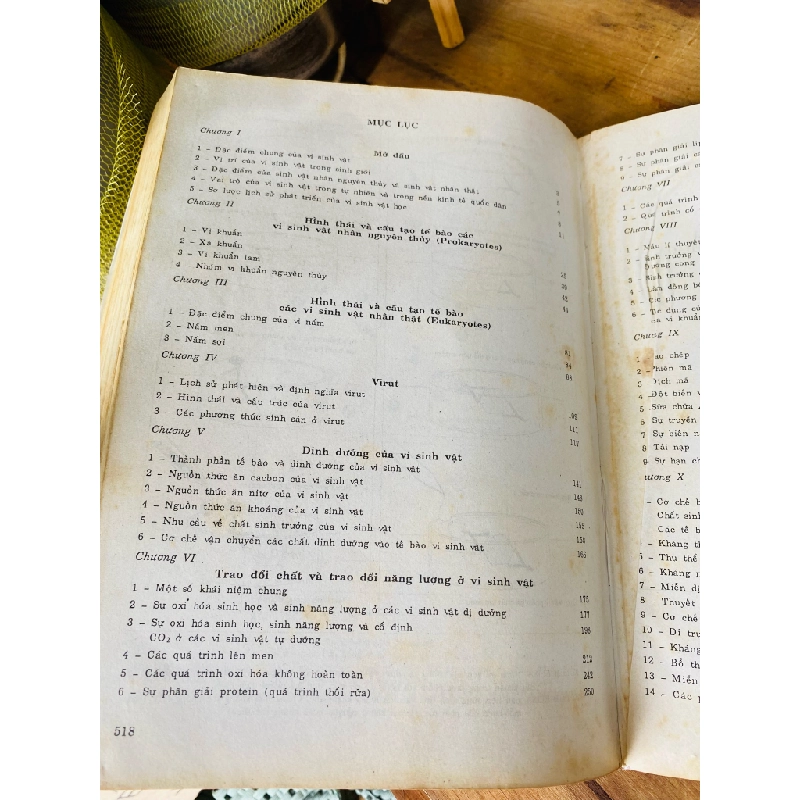 MỤC LỤC
Chương I
Mở đầu
1 - Đặc điểm chung của vi sinh vật
2 - Vị trí của vi sinh vật trong sinh giới
3 - Đặc điểm các sinh vật nhân nguyên thủy vi sinh vật nhân thật
4 - Vai trò của vi sinh vật trong tự nhiên và trong nền kinh tế quốc dân
5 - Sơ lược lịch sử phát triển của vi sinh vật học
Chương II
Hình thái và cấu tạo tế bào các
vi sinh vật nhân nguyên thủy (Prokaryotes)
1 - Vi khuẩn
2 - Xạ khuẩn
3 - Vi khuẩn lam
4 Nhóm vi khuẩn nguyên thủy
Chương III
Hình thái và cấu tạo tế bào
các vi sinh vật nhân thật (Eukaryotes)
1 - Đặc điểm chung của vi nấm
2 - Nấm men
3 - Nấm sợi
Chương IV
Virut
1 - Lịch sử phát hiện và định nghĩa virut
2 - Hình thái và cấu trúc của virut
3 Các phương thức sinh sản ở virut
Chương V
Dinh dưỡng của vi sinh vật
1 - Thành phần tế bào và dinh dưỡng của vi sinh vật
2 - Nguồn thức ăn cacbon của vi sinh vật
3 - Nguồn thức ăn nitơ của vi sinh vật
4 - Nguồn thức ăn khoáng của vi sinh vật
5 - Nhu cầu về chất sinh trưởng của vi sinh vật
6 - Cơ chế vận chuyển các chất dinh dưỡng vào tế bào vi sinh vật
Chương VI
Trao đổi chất và trao đổi năng lượng ở vi sinh vật
1 - Một số khái niệm chung
2 - Sự oxi hóa sinh học và sinh năng lượng ở các vi sinh vật dị dưỡng 177
3 - Sự oxi hóa sinh học, sinh năng lượng và cố định
CO₂ ở các vi sinh vật tự dưỡng
4 - Các quá trình lên men 212
5 - Các quá trình oxi hóa không hoàn toàn 242
6 - Sự phân giải protein (quá trình thối rữa) 250
518
- Sự phân giải
- Sự phân giải
- Sự phân giải
Chương VII
1 - Các quá trình
2 - Quá trình cố
Chương VIII
1 - Mẫu lí thuyết
đường cong
Sinh trưởng
Làm đồng bộ
của vi khuẩn
Chương IX
Sao chép
Phiên mã
Dịch mã
Đột biến
Sửa chữa
6 Sự truyền
7 Sự biến
8 Tái nạp
9 Sự hạn
X
- Cơ chế
Chất sinh
Các tế
- Kháng
5 - Thụ thể
6 - Kháng
7 - Miễn
8 Thuyết
9 - Cơ chế
10 - Di
11 - Kháng
12 - Bổ
13 - Miễn
14 - Các